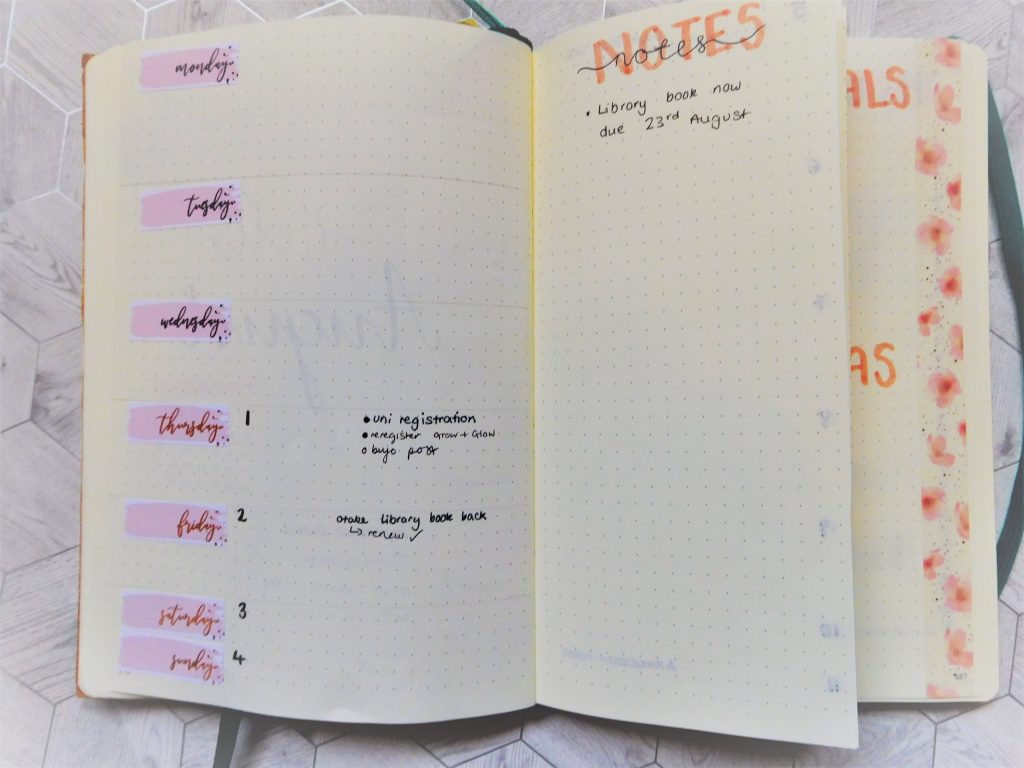 monday
tuesday
wednesday
thursday 1
• uni registration
• reregister Grow + Glow
o bujo post
friday 2
o take library book back
↳ renew ✓
saturday 3
sunday 4
NOTES
notes
• Library book now
due 23rd August
ALS
AS
August
6
7
8
9
10
11